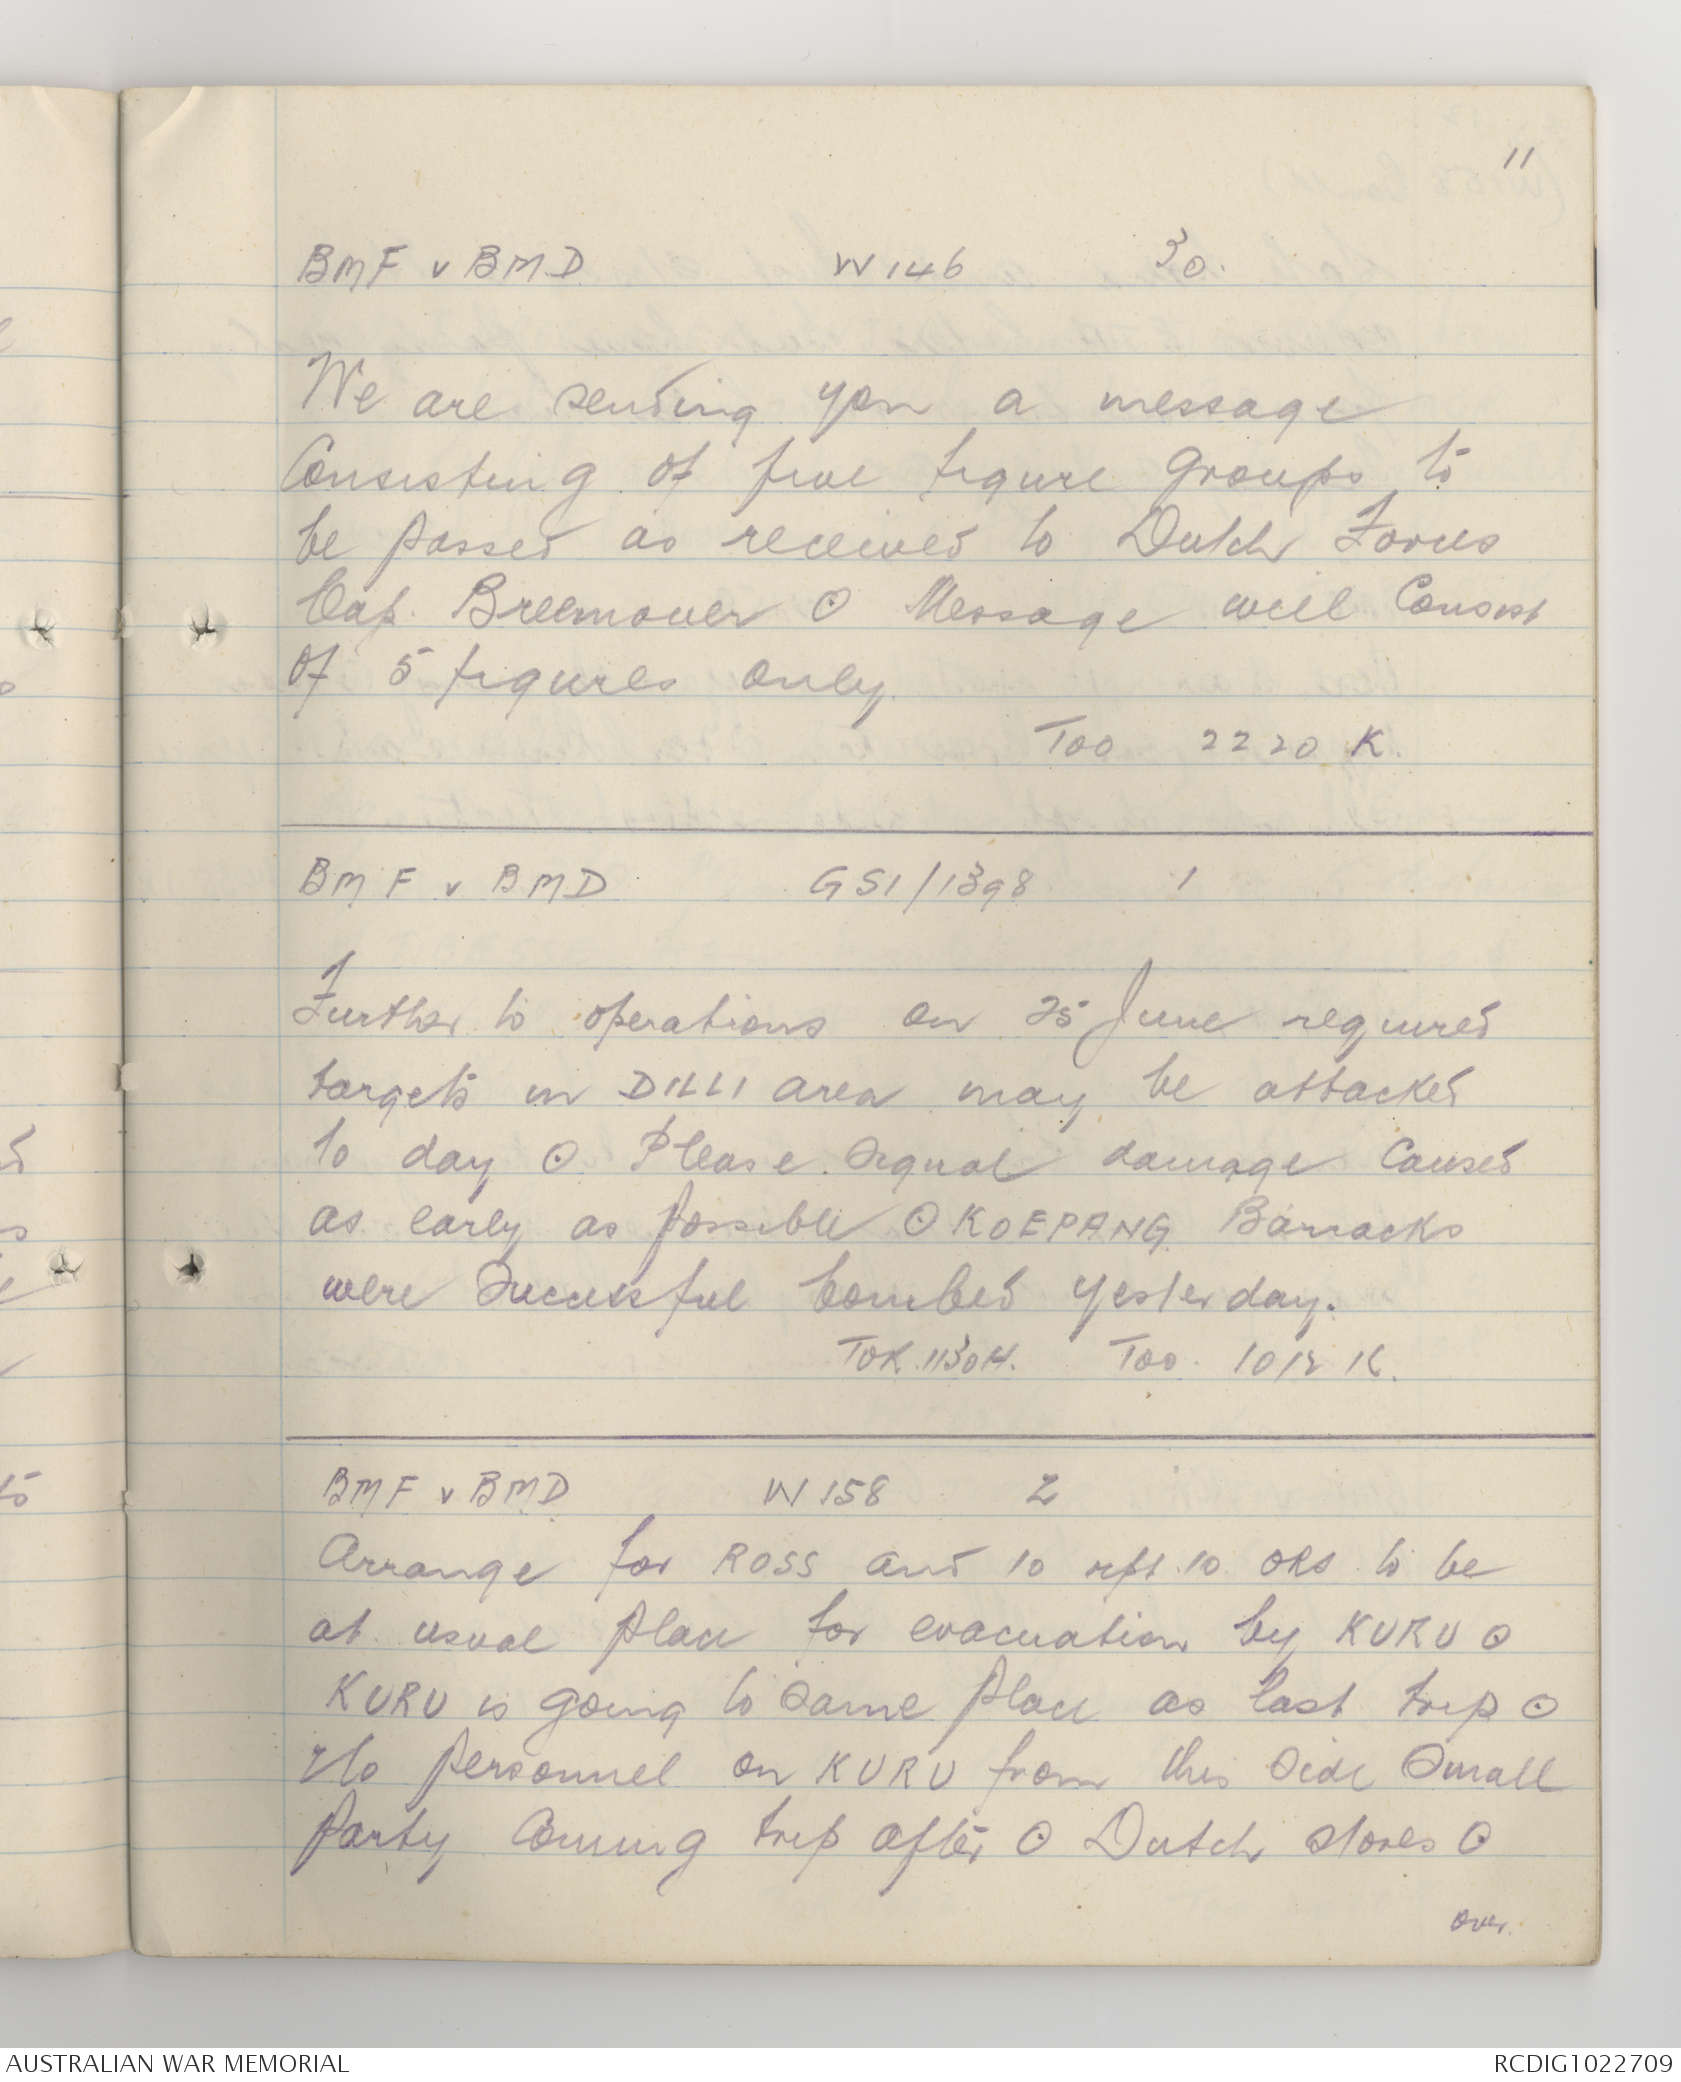 11
BMF v BMD W146 30.
We are sending you a message
Consisting of five figure Groups to
be passed as received to Dutch Forces
Cap. Breemouer ⊙ Message will Consist
of 5 figures only.
TOO 2220 K.
BMF v BMD GSI/1398 1
Further to operations on 25 June required
targets in DILLI area may be attacked
to day ⊙ Please signal damage Caused
as early as possible ⊙ KOEPANG Barracks
were Successful bombed yesterday.
TOR 1130H. TOO 1012 K.
BMF v BMD W158 2
Arrange for ROSS and 10 rpt 10 ORS to be
at usual place for evacuation by KURU ⊙
KURU is going to same place as last trip ⊙
No personnel on KURU from this side Small
Party Coming trip after ⊙ Dutch stores ⊙
over.
AUSTRALIAN WAR MEMORIAL RCDIG1022709